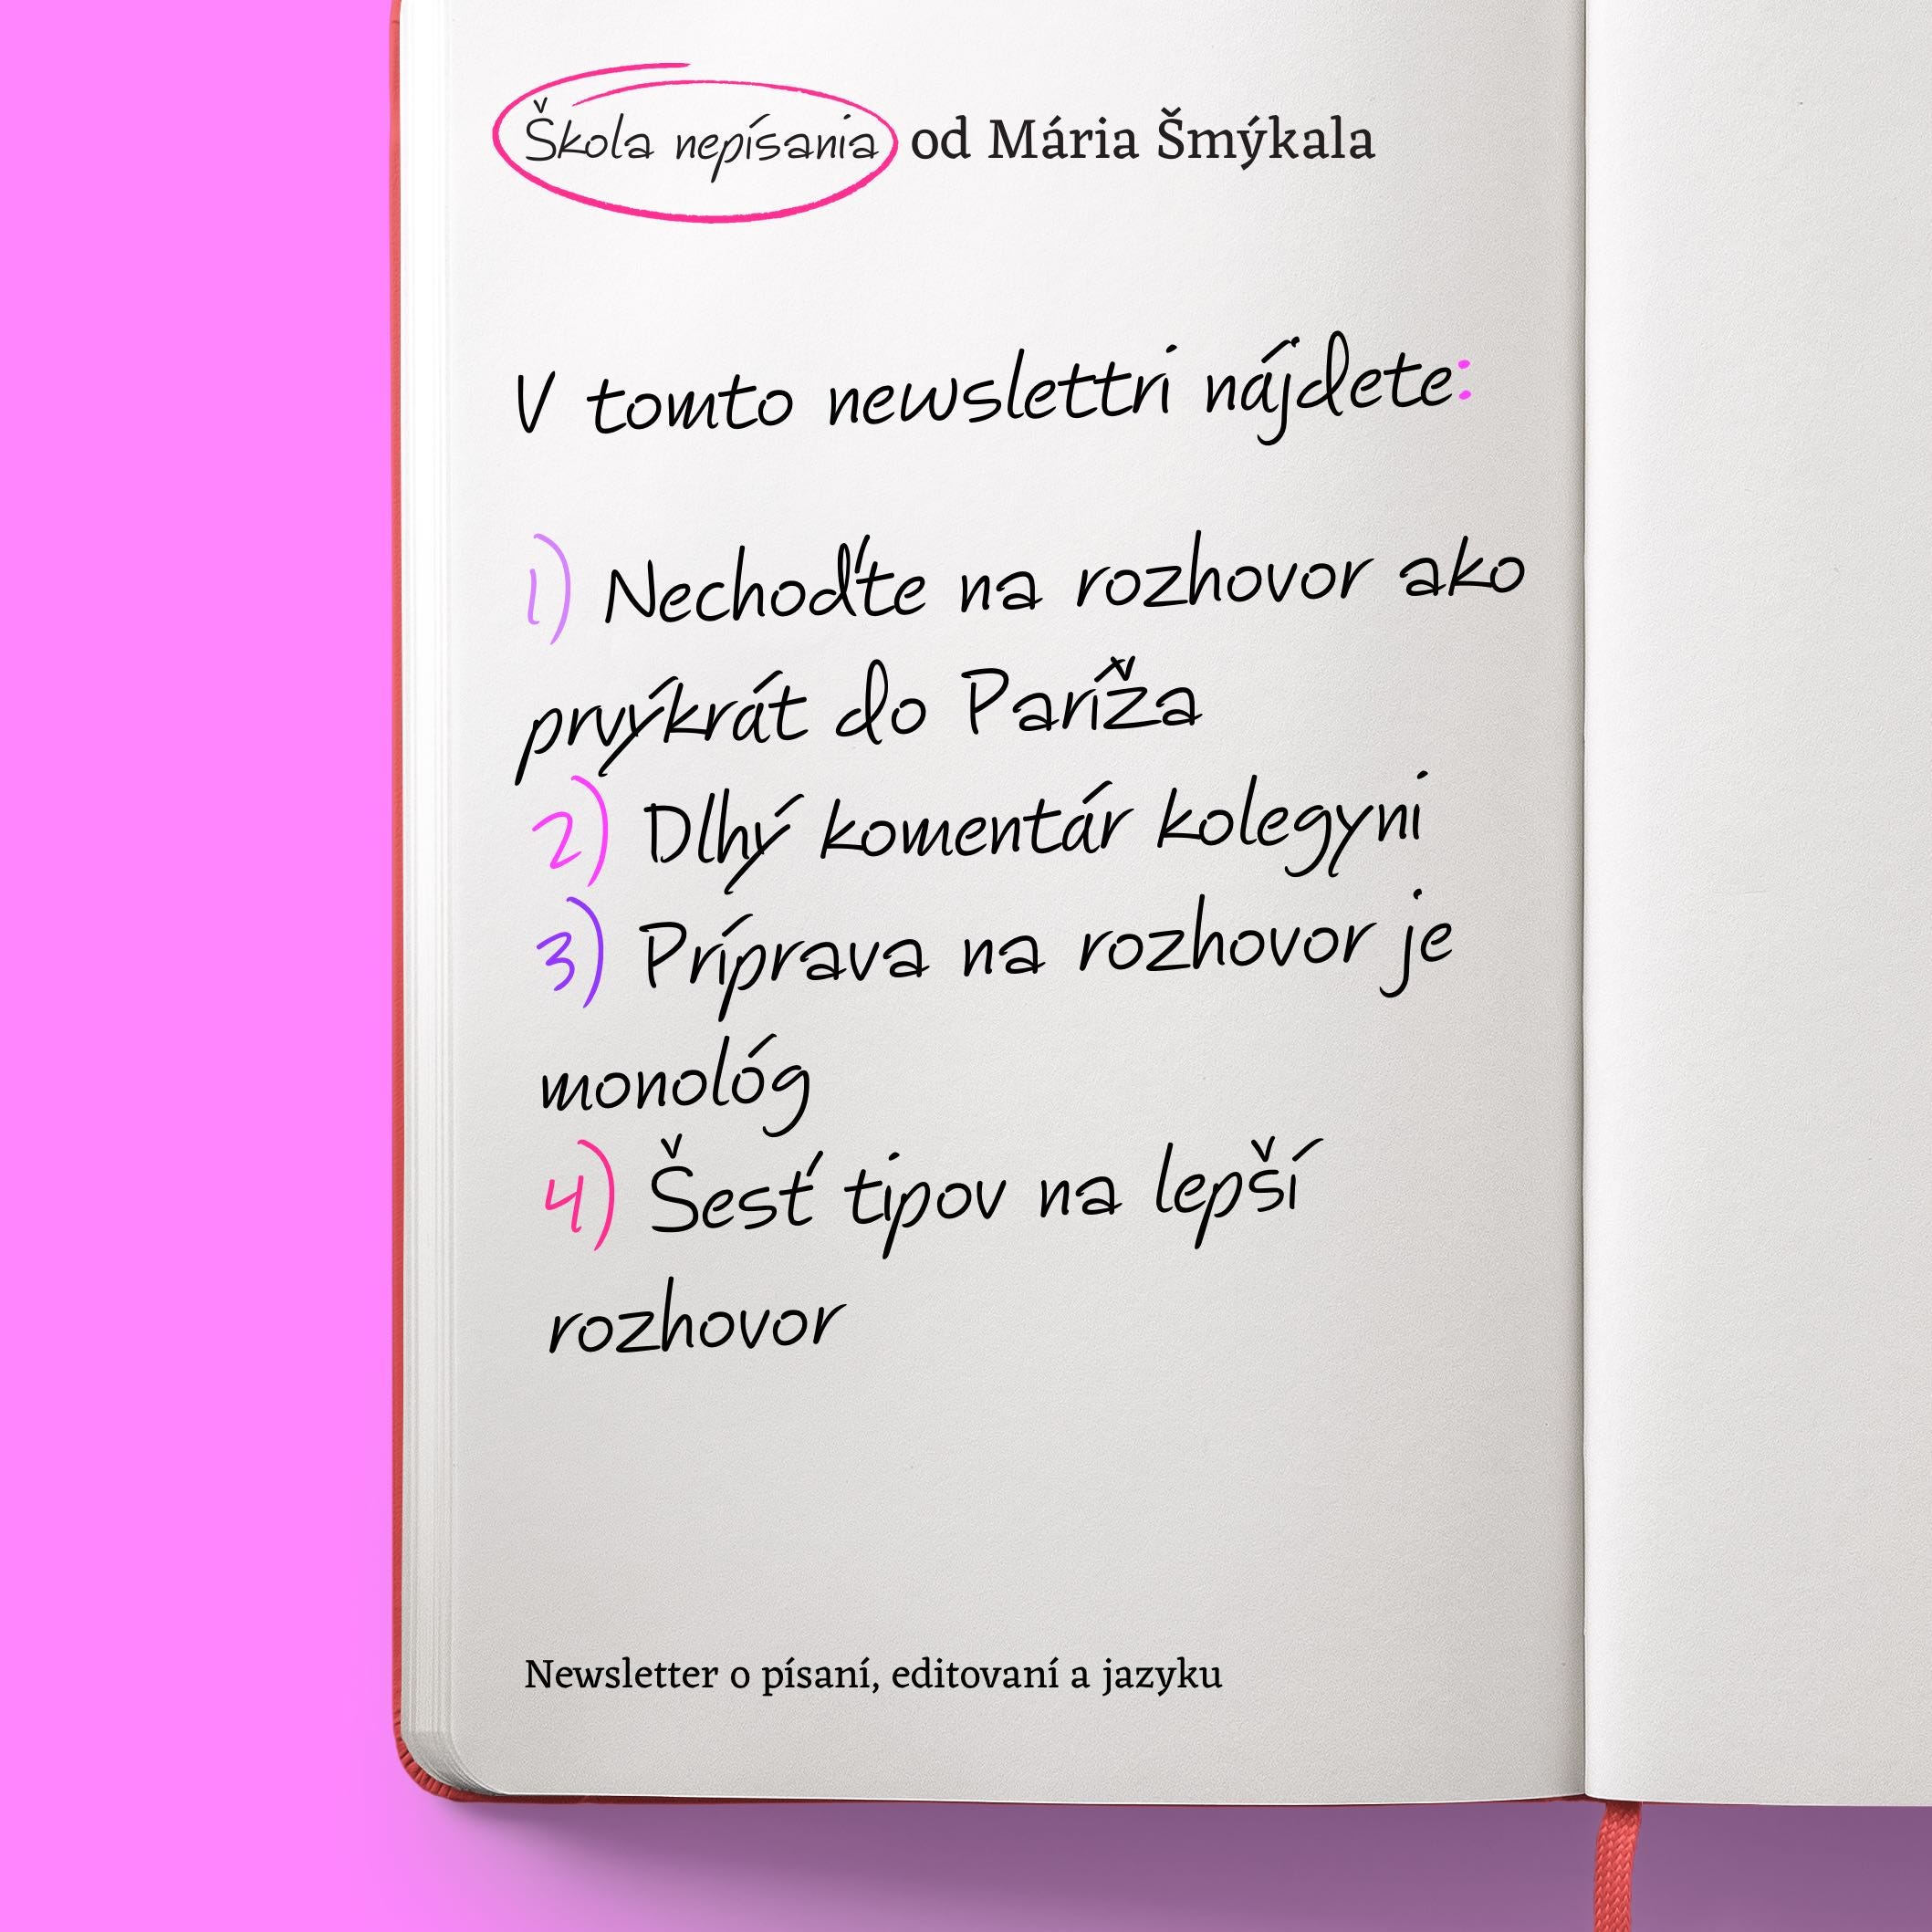 Škola nepísania od Mária Šmýkala
V tomto newslettri nájdete:
1) Nechoďte na rozhovor ako
prvýkrát do Paríža
2) Dlhý komentár kolegyni
3) Príprava na rozhovor je
monológ
4) Šesť tipov na lepší
rozhovor
Newsletter o písaní, editovaní a jazyku